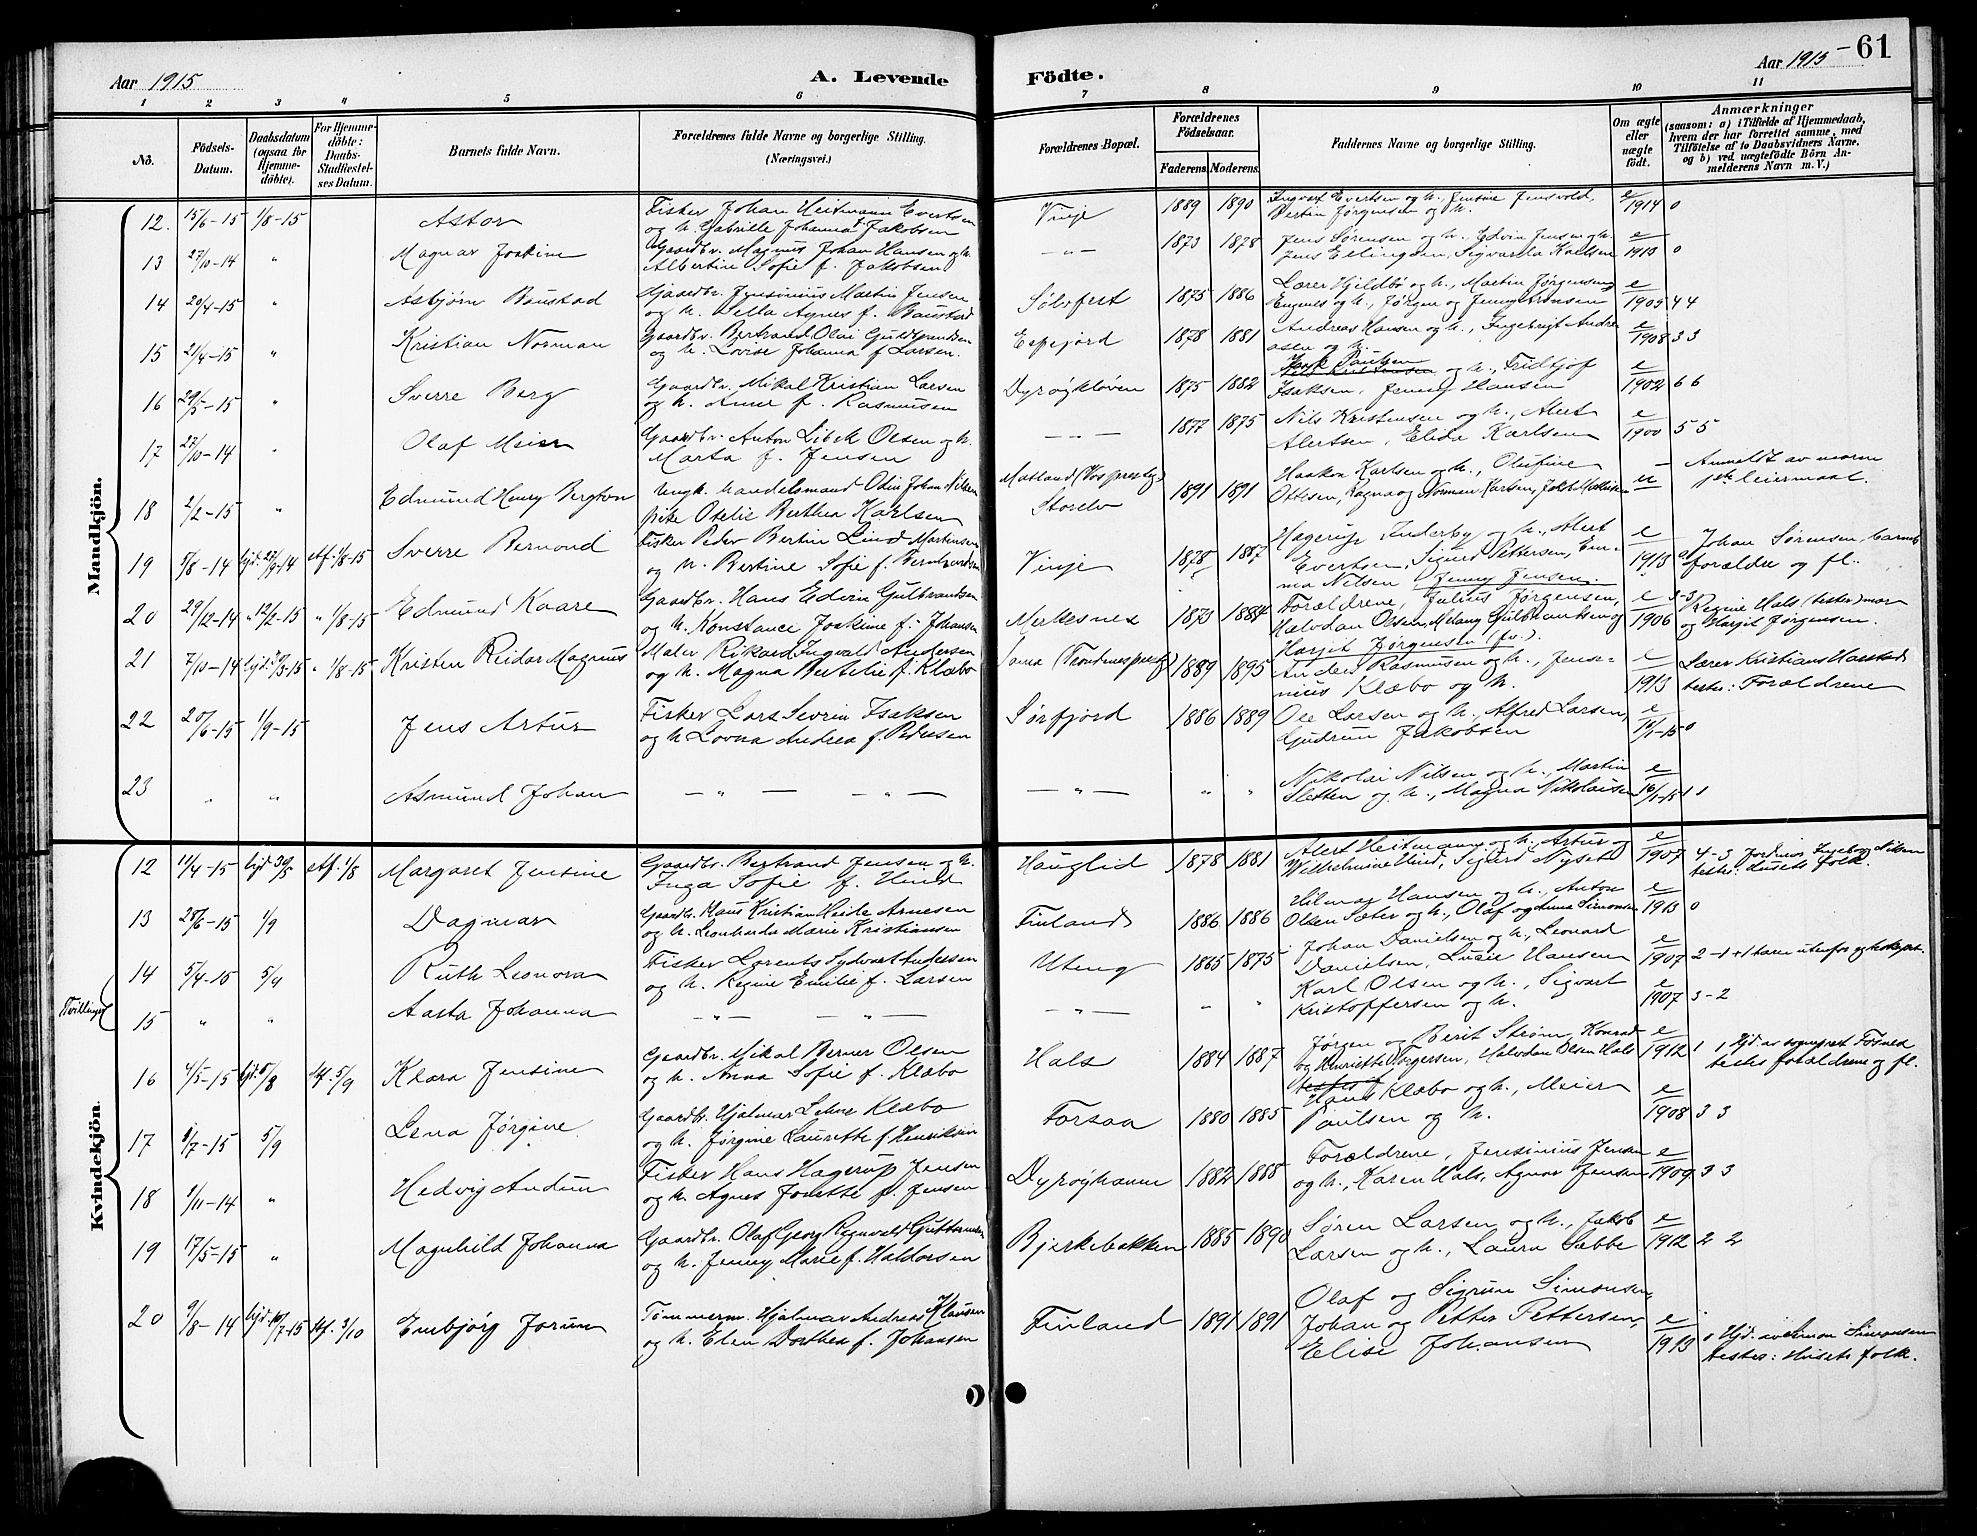 Aar 1915
A. Levende
Födte.
Aar 1915
61
1 2 3 4 5 6 7 8 9 10 11
No.
Födsels-Datum.
Daabsdatum (ogsaa for Hjemme-döbte).
For Hjemme-döbte: Daabs-Stadfæstel-ses Datum.
Barnets fulde Navn.
Forældrenes fulde Navne og borgerlige Stilling.
(Næringsvei.)
Forældrenes Bopæl.
Forældrenes Födselsaar.
Faderens. Moderens.
Faddernes Navne og borgerlige Stilling.
Om ægte eller uægte födt.
Anmærkninger
(saasom: a) i Tilfælde af Hjemmedaab, hvem der har forrettet samme, med Tilföielse af to Daabsvidners Navne, og b) ved uægtefödte Börn An-melderens Navn m. V.)
Mandkjön.
12. 15/6-15 1/8-15 Astor Fisker Johan Heitmann Evertsen
og h. Gabrielle Johanna f. Jakobsen Vinje 1889 1890 Ingvar Evertsen og h., Jensine Jensvold,
Bertin Jørgensen og h. e/1914 0
13 27/10-14 " Magnar Joakine Gaardbr. Magnus Johan Hansen og h.
Albertine Sofie f. Jakobsen -"- 1873 1878 Jens Sørensen og h., Edvin Jensen og h.
Jens Ellingsen, Sigvarda Karlsen e/1913 0
14 20/4-15 " Asbjørn Baustad Gaardbr. Jensinius Martin Jensen
og h. Della Agnes f. Baustad Sølvfest 1875 1886 Lærer Hjeldbø og h., Martin Jørgensen
Engenes og h., Jørgen og Jenny Simonsen e/1905 4 4
15 21/4-15 " Kristian Norman Gaardbr. Bertrand Olai Guldbrandsen
og h. Lovise Johanna f. Larsen. Espejord 1878 1881 Andreas Hansen og h., Ingebrigt Andre
asen og h. e/1908 3 3
16 29/5-15 " Sverre Berg Gaardbr. Mikal Kristian Larsen
og h. Anne f. Rasmusen Dyrøykloven 1875 1882 Paulsen og h., Fridtjof
Isaksen, Jenny Hansen e/1902 6 6
17 27/10-14 " Olaf Meier Gaardbr. Anton Libek Olsen og h.
Marta f. Jensen -"- 1877 1875 Nils Kristensen og h., Alert
Alertsen, Elida Karlsen e/1900 5 5
18 2/2-15 " Edmund Henry Bergton Ungk. handelsmand Odin Johan Nilsen
pike Otelie Berthea Karlsen Matland (Vos prestg)
Storelv 1891 1891 Haakon Karlsen og h., Olufine
Ottesen, Ragna og Norman Karlsen, u Anmeldt av moren
1ste leiermaal.
19 7/8-14 hjd. 27/9-14 stf. 1/8-15 Sverre Bernond Fisker Peder Bertin Lind Martinsen
og h. Bertine Sofie f. Berntzardsen Vinje 1878 1887 Hagerup Inderby og h., Alert
Evertsen, Signe Pettersen, Em-
ma Nilsen, Jenny Jensen. e/1913 Johan Sørensen, barnets
forældre og fl.
20 29/12-14 " 12/2-15 " 1/8-15 Edmund Kaare Gaardbr. Hans Edvin Gulbrandsen
og h. Konstance Joakime f. Johansen Merkesnes 1873 1884 Forældrene, Julius Jørgensen,
Halvdan Olsen, Melany Guldbrandsen og
Harjit Jørgensen (fv.). e/1906 3-3 Regine Hals (tester) mor
og Harjit Jørgensen.
21 7/10-14 hjd. 30/3-15 " 1/8-15 Kristen Reidar Magnus Maler Rikard Ingvald Andersen
og h. Magna Bertelie f. Klæbo Sama (Trondenes prestg) 1889 1895 Anders Rasmusen og h., Jense-
nius Klæbo og h. e/1913 Lærer Kristians Harstad
tester: Forældrene
22 20/6-15 1/9-15 Jens Artur Fisker Lars Sevrin Isaksen
og h. Lovna Andrea f. Pedersen Sørfjord 1886 1889 Ole Larsen og h., Alfred Larsen,
Gudrun Jakobsen e 0
23 " " Asmund Johan -"- -"- -"- " " Nikolai Nilsen og h., Martin
Sletten og h., Magna Nikolaisen e 1 1
Kvindekjön.
12 11/4-15 hjd. 30/5 stf. 1/8 Margaret Jensine Gaardbr. Bertrand Jensen og h.
Inga Sofie f. Hind Hauglid 1878 1881 Alert Heitmann og h., Artur og
Wilhelmine Hind, Sigurd Nysted e/1907 4-3 Jordmor Ingeborg Nilsen
tester: Husets folk.
13 28/6-15 1/9 Dagmar Gaardbr. Hans Kristian Heide Arnesen
og h. Leonharda Marie Kristiansen Finland 1886 1886 Hilmar Hansen og h., Anton
Olsen Sæter og h., Olaf og Anna Simonsen e/1913 0
Tvillinger
14 5/4-15 5/9 Ruth Leonora Fisker Lorents Sydvart Andersen
og h. Regine Emilie f. Larsen Uteng 1865 1875 Johan Danielsen og h., Leonard
Danielsen, Lusie Hansen e/1907 2-1
15 " " Aasta Johanna -"- -"- -"- " " Karl Olsen og h., Sigvart
Kristoffersen og h. e/1907 3-2
16 4/5-15 hjd. 8/8 stf. 5/9 Klara Jensine Gaardbr. Mikal Berner Olsen
og h. Anna Sofie f. Klæbo Hals 1884 1887 Jørgen og Berit Strøm, Konrad
og Henriette Torgersen, Halvdan Olsen Hals e/1912 1 1 Hjd. av sogneprest Fosned
testes forældrene og fl.
17 8/7-15 5/9 Lena Jørgine Gaardbr. Hjalmar Lehne Klæbo
og h. Jørgine Laurette f. Henriksen Forsaa 1880 1885 Hans Klæbo og h., Meier
Paulsen og h. e/1908 3 3
18 1/11-14 " Hedvig Audun Fisker Hans Hagerup Jensen
og h. Agnes Josette f. Jensen Dyrøyhamn 1882 1888 Forældrene, Jensinius Jensen
og h., Karen Hals, Agnar Jensen e/1909 3 3
19 17/5-15 " Magnhild Johanna Gaardbr. Olaf Georg Regnvald Guttormsen
og h. Jenny Marie f. Haldorsen Bjerkebakken 1885 1890 Søren Larsen og h., Jakob
Larsen og h., Laura Sebbe e/1912 2 2
20 9/8-14 hjd. 10/7-15 stf. 3/10 Embjørg Jorunn Tømmerm. Hjalmar Andreas Klausen
og h. Elen Dorthea f. Johansen Finland 1891 1891 Olaf og Sigrun Simonsen,
Johan og Petter Pettersen,
Elise Johansen e/1913 0 Hjd. av Simon Simonsen
tester: Husets folk.